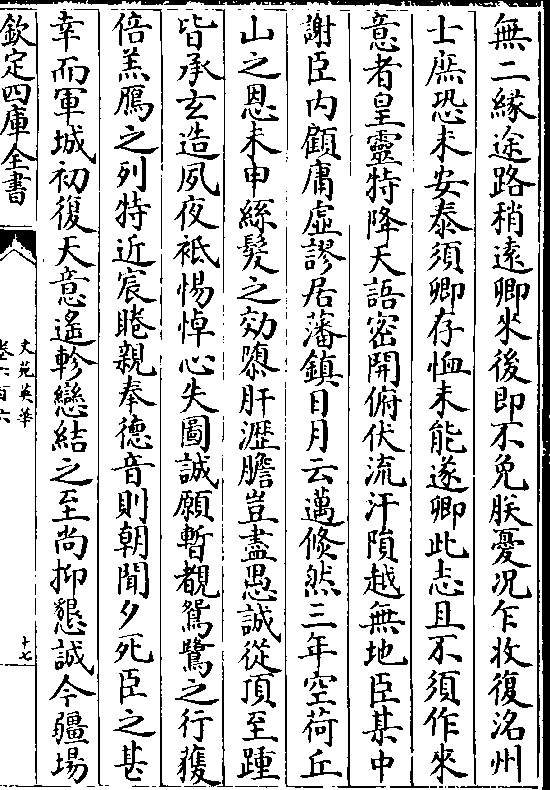 無二緣途路稍遠卿来後即不免朕憂况乍收復洺州
士庶恐未安泰須卿存恤未能遂卿此志且不須作來
意者皇靈特降天語密開俯伏流汗隕越無地臣某中
謝臣内顧庸虛謬居藩鎮日月云邁倐然三年空荷丘
山之恩未申絲髮之効隳肝瀝膽豈盡愚誠從頂至踵
皆承玄造夙夜祗惕悼心失圖誠願暫覩鴛鷺之行獲
倍羔鴈之列特近宸睠親奉德音則朝聞夕死臣之甚
幸而軍城初復天意遙軫戀結之至尚抑懇誠今疆場
欽定四庫全書
文苑英華
卷六百六
十七